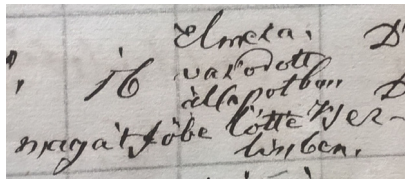 „ 16 Elmeza- D
varodott
állapotban D
magát főbe lőtte Wer-
linben.